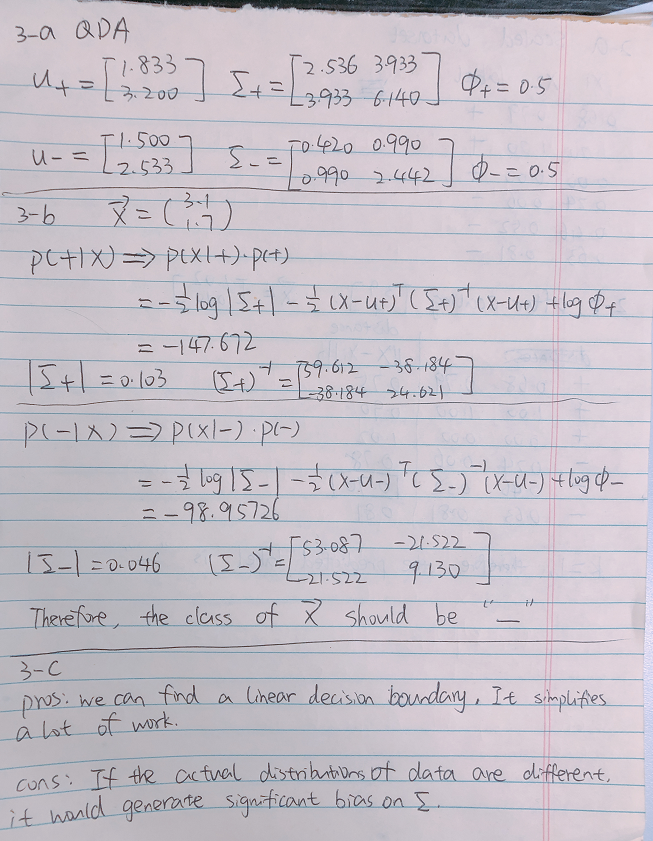 3-a QDA
u+ = [1.833 3.200] Σ+ = [2.536 3.933 3.933 6.140] ϕ+ = 0.5
u- = [1.500 2.533] Σ- = [0.420 0.990 0.990 2.442] ϕ- = 0.5
3-b X⃗ = (3.1 1.7)
p(+|X) ⇒ p(X|+)·p(+)
= -½ log |Σ+| - ½ (X-u+)ᵀ (Σ+)⁻¹ (X-u+) + log ϕ+
= -147.672
|Σ+| = 0.103 (Σ+)⁻¹ = [59.612 -38.184 -38.184 24.621]
p(-|X) ⇒ p(X|-)·p(-)
= -½ log |Σ-| - ½ (X-u-)ᵀ (Σ-)⁻¹ (X-u-) + log ϕ-
= -98.95726
|Σ-| = 0.046 (Σ-)⁻¹ = [53.087 -21.522 -21.522 9.130]
Therefore, the class of X⃗ should be "—"
3-C
pros: we can find a linear decision boundary. It simplifies
a lot of work.
cons: If the actual distributions of data are different,
it would generate significant bias on Σ.